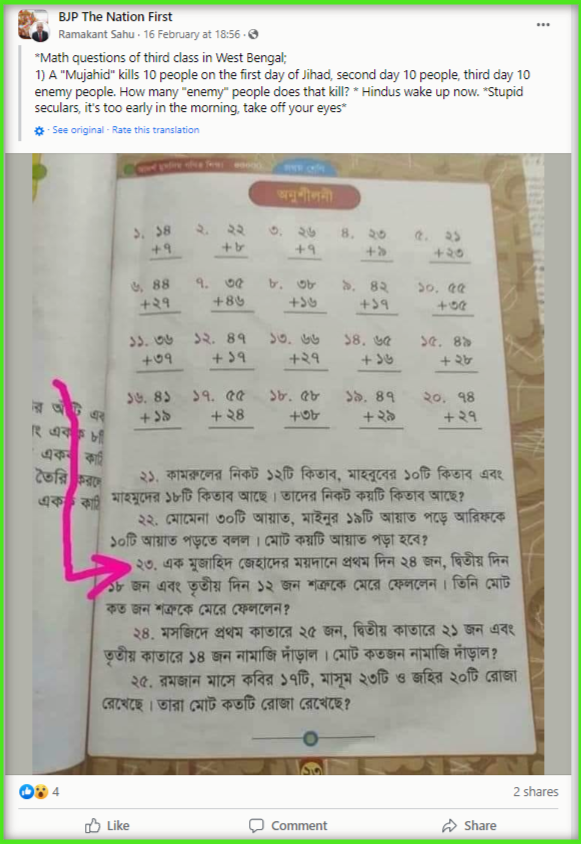 BJP The Nation First
Ramakant Sahu · 16 February at 18:56 ·
*Math questions of third class in West Bengal;
1) A "Mujahid" kills 10 people on the first day of Jihad, second day 10 people, third day 10
enemy people. How many "enemy" people does that kill? * Hindus wake up now. *Stupid
seculars, it's too early in the morning, take off your eyes*
· See original · Rate this translation
প্রথম শ্রেণি
অনুশীলনী
১. ১৪ ২. ২২ ৩. ২৬ ৪. ২৩ ৫. ২১
+৭ +৮ +৭ +৯ +২৩
৬. ৪৪ ৭. ৩৫ ৮. ৩৮ ৯. ৪২ ১০. ৫৫
+২৭ +৪৬ +১৬ +১৭ +৩৫
১১. ৩৬ ১২. ৪৭ ১৩. ৬৬ ১৪. ৬৫ ১৫. ৪৯
+৩৭ +১৭ +২৭ +১৬ +২৮
১৬. ৪১ ১৭. ৫৫ ১৮. ৫৮ ১৯. ৪৭ ২০. ৭৪
+১৯ +২৪ +৩৮ +২৯ +২৭
২১. কামরুলের নিকট ১২টি কিতাব, মাহবুবের ১০টি কিতাব এবং
মাহমুদের ১৮টি কিতাব আছে। তাদের নিকট কয়টি কিতাব আছে?
২২. মোমেনা ৩০টি আয়াত, মাইনুর ১৯টি আয়াত পড়ে আরিফকে
১০টি আয়াত পড়তে বলল। মোট কয়টি আয়াত পড়া হবে?
২৩. এক মুজাহিদ জেহাদের ময়দানে প্রথম দিন ২৪ জন, দ্বিতীয় দিন
১৮ জন এবং তৃতীয় দিন ১২ জন শত্রুকে মেরে ফেললেন। তিনি মোট
কত জন শত্রুকে মেরে ফেললেন?
২৪. মসজিদে প্রথম কাতারে ২৫ জন, দ্বিতীয় কাতারে ২১ জন এবং
তৃতীয় কাতারে ১৪ জন নামাজি দাঁড়াল। মোট কতজন নামাজি দাঁড়াল?
২৫. রমজান মাসে কবির ১৭টি, মাসূম ২৩টি ও জহির ২০টি রোজা
রেখেছে। তারা মোট কতটি রোজা রেখেছে?
একক
তৈরি করলে
একক
4
2 shares
Like Comment Share